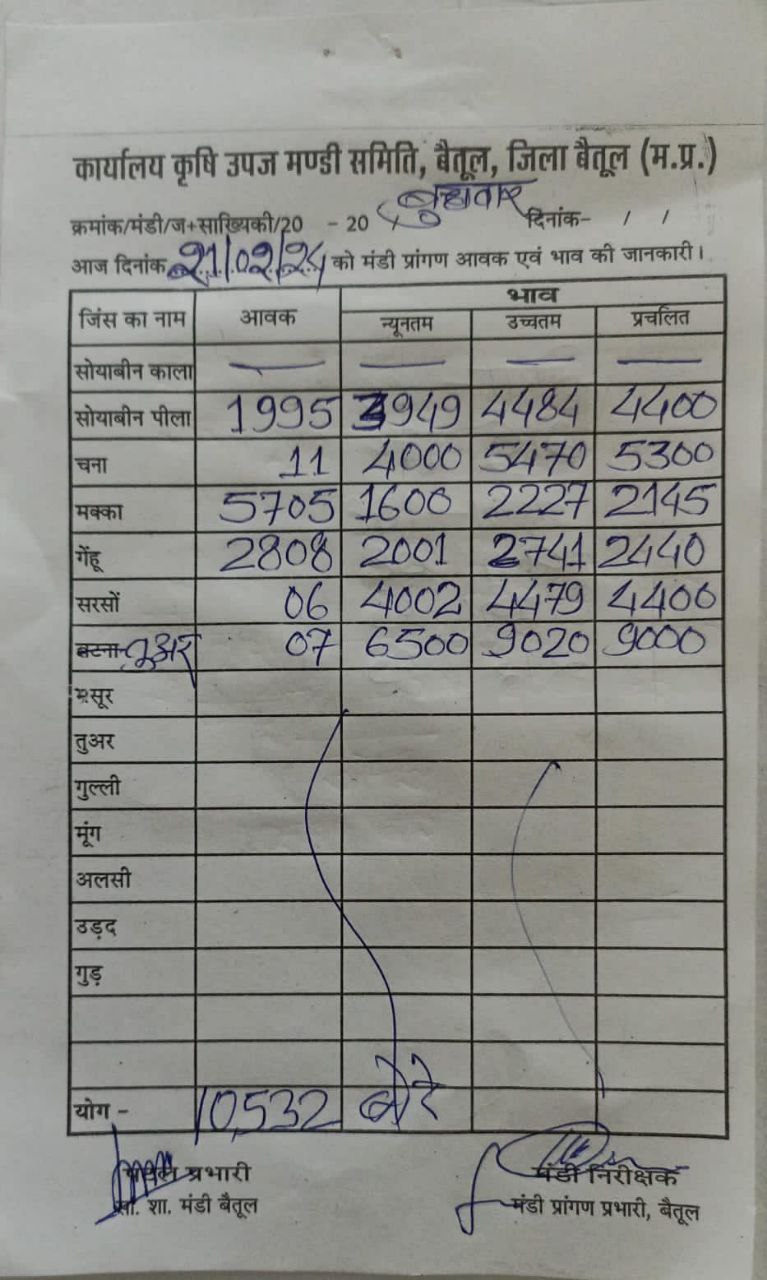 कार्यालय कृषि उपज मण्डी समिति, बैतूल, जिला बैतूल (म.प्र.)
क्रमांक/मंडी/ज+साख्यिकी/20 - 20 बुधवार दिनांक- / /
आज दिनांक 21/02/24 को मंडी प्रांगण आवक एवं भाव की जानकारी।
जिंस का नाम आवक भाव
न्यूनतम उच्चतम प्रचलित
सोयाबीन काला — — — —
सोयाबीन पीला 1995 3949 4484 4400
चना 11 4000 5470 5300
मक्का 5705 1600 2227 2145
गेंहू 2808 2001 2741 2440
सरसों 06 4002 4479 4400
बटना तूअर 07 6500 9020 9000
मसूर
तुअर
गुल्ली
मूंग
अलसी
उड़द
गुड़
योग - 10,532 बोरे
प्रभारी मंडी निरीक्षक
सां. शा. मंडी बैतूल मंडी प्रांगण प्रभारी, बैतूल